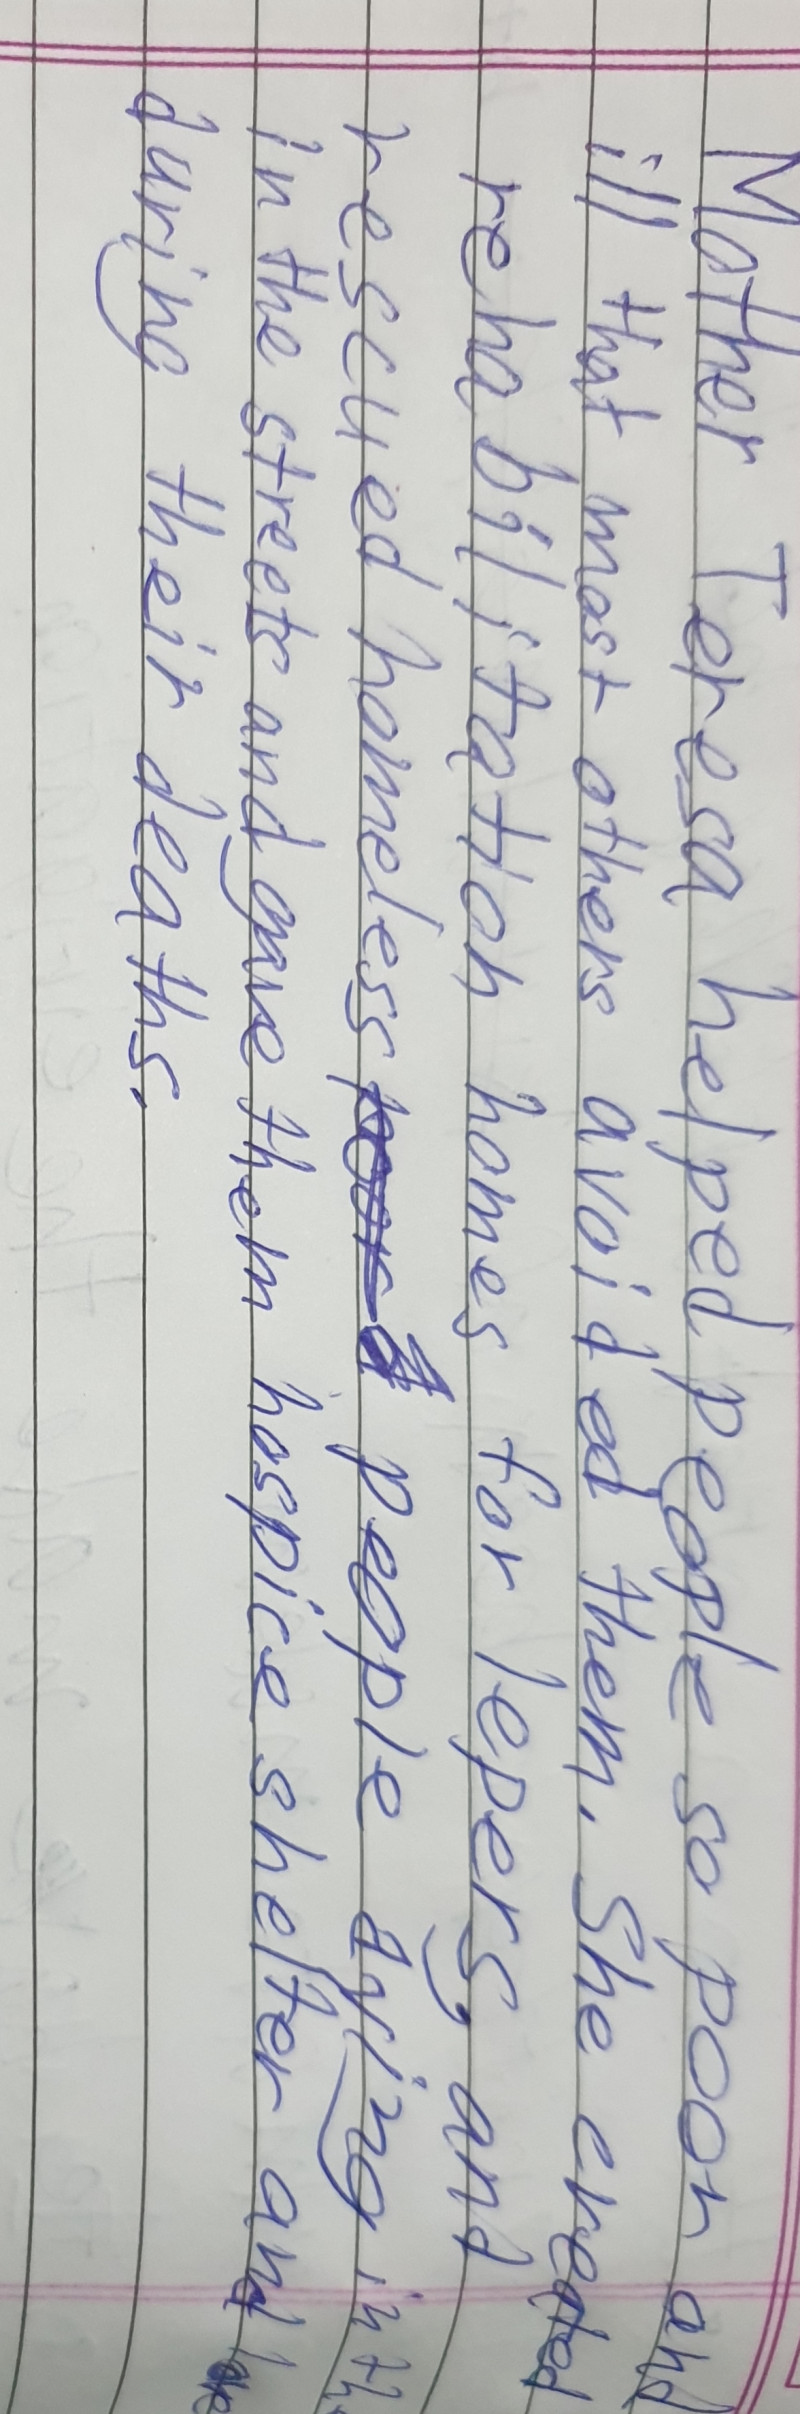 Mother Teresa helped people so poor and
ill that most others avoided them. She created
rehabilitation homes for lepers, and
rescued homeless people dying in th
in the streets and gave them hospice shelter and
during their deaths.